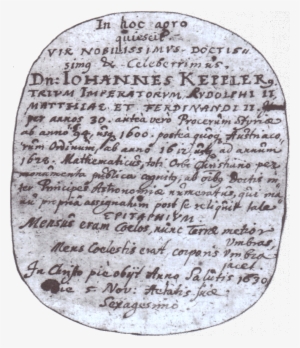 In hoc agro
quiescit
VIR NOBILISSIMUS DOCTIS=
simq & Celeberrimus
Dn: IOHANNES KEPPLERg
TRIUM IMPERATORUM RUDOLPHI II,
MATTHIAE ET FERDINANDI II,
per annos 30. antea vero Procerum Styriae
ab anno 94 usq 1600. postea quoq Austriaco,
rum Ordinum, ab anno 1612 usq ad annum
1628. Mathematicus, toti Orbi Christiano per
monumenta publica cognitus, ab omnibus Doctis in
ter Principes Astronomiae numeratus, qui
manu propria assignatum post se reliquit tale
EPITAPHIUM
Mensus eram Coelos, nunc Terrae metior
Umbras,
Mens Coelestis erat, corporis Umbra
jacet.
In Christo pie obijt Anno Salutis 1630
Die 5 Nov: Aetatis suae
Sexagesimo